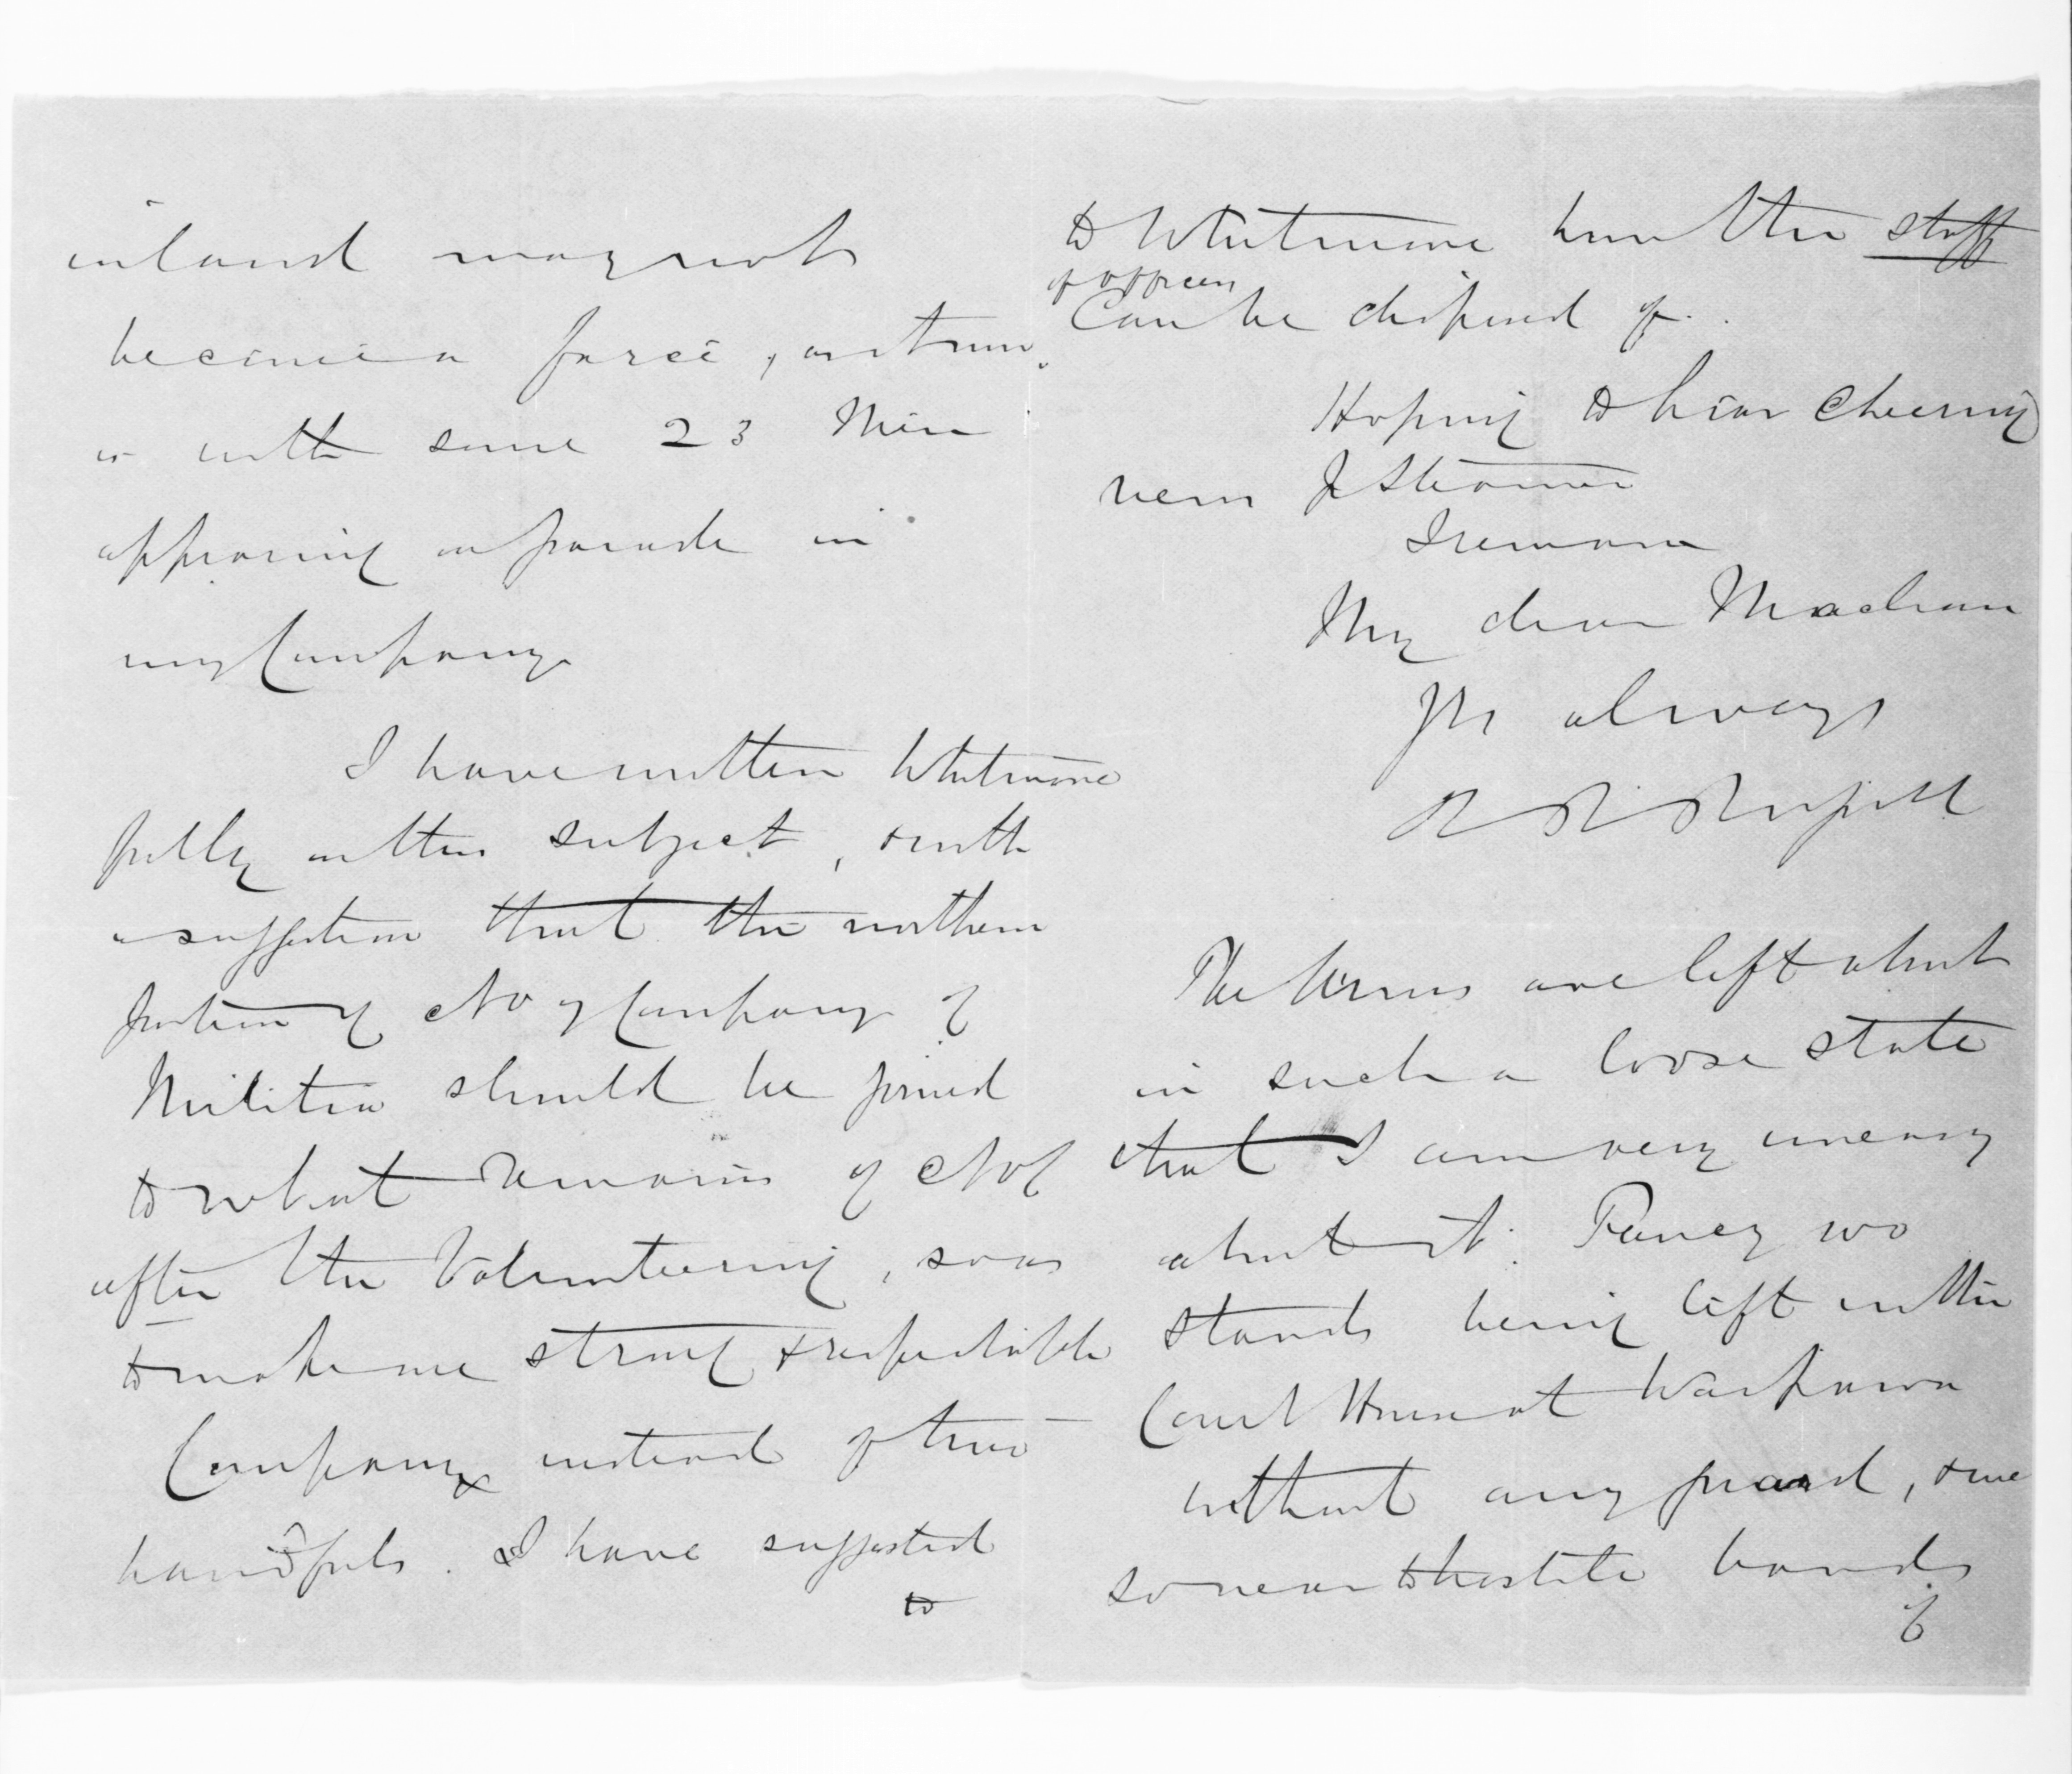 inland may not
become a farce, as it now
is with some 23 Men
appearing on parade in
my Company
I have written Whitmore
fully on this subject, & with
a suggestion that the northern
portion of No 7 Company of
Militia should be joined
to what remains of No 8
after the Volunteering, so as
to make one strong & respectable
Company instead of two
handfuls. I have suggested
to
to Whitmore how the staff
of officers
Can be disposed of.
Hoping to hear cheering
news p Steamer
I remain
My dear Maclean
Yrs always
The Arms are left about
in such a loose state
that I am very uneasy
about it. Fancy 200
stands being left in the
Court House at Waipawa
without any guard, & we
so near to hostile bands
of